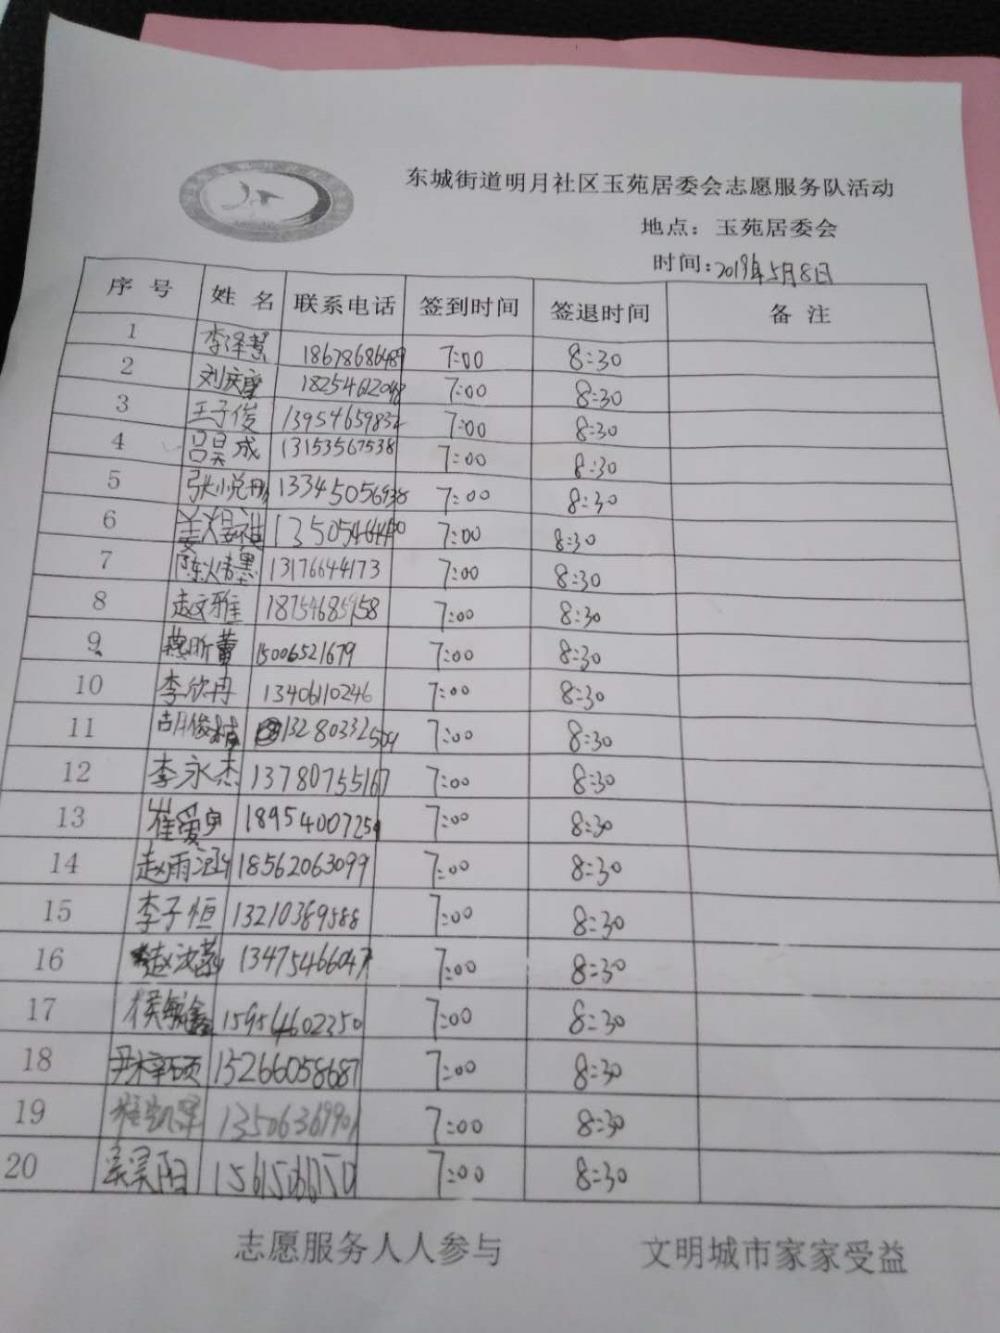 东城街道明月社区玉苑居委会志愿服务队活动
地点：玉苑居委会
时间：2019年5月8日
序号 姓名 联系电话 签到时间 签退时间 备注
1 李泽慧 18678686489 7:00 8:30
2 刘庆 18254612048 7:00 8:30
3 王子俊 13954659832 7:00 8:30
4 吕昊成 13153567538 7:00 8:30
5 张小悦 13345056938 7:00 8:30
6 姜 7:00 8:30
7 陈 13176644173 7:00 8:30
8 赵文雅 18754685958 7:00 8:30
9 燕昕蕾 15006521679 7:00 8:30
10 李欣冉 13406110246 7:00 8:30
11 胡俊楠 13280332504 7:00 8:30
12 李永杰 13780755167 7:00 8:30
13 崔爱 18954007251 7:00 8:30
14 赵雨涵 18562063099 7:00 8:30
15 李子恒 13210389588 7:00 8:30
16 赵汝 13475466047 7:00 8:30
17 侯毓鑫 15954602250 7:00 8:30
18 尹梓硕 15266058687 7:00 8:30
19 13506369901 7:00 8:30
20 阳 7:00 8:30
志愿服务人人参与 文明城市家家受益